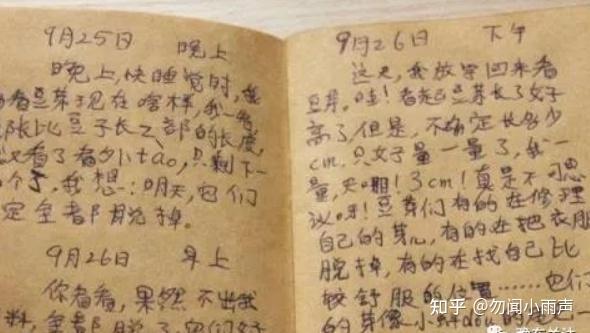 9月25日 晚上
晚上,快睡觉时,我
看豆芽现在啥样,我一看
张比豆子长 部的长度,
又看了看外tao,只剩下一
个了,我想:明天,它们
定全都脱掉。
9月26日 早上
你看看,果然不出我
料,全都脱了它们好
9月26日 下午
这天,我放学回来看
豆芽。哇!看起豆芽长了好
高了,但是,不确定长多少
cm.只好量一量了,我一
量,天啊!3cm!真是不可思
议呀!豆芽们有的在修理
自己的芽,有的在把衣服
脱掉,有的在找自己比
较舒服的位置……它们
的芽像
知乎 @勿闻小雨声